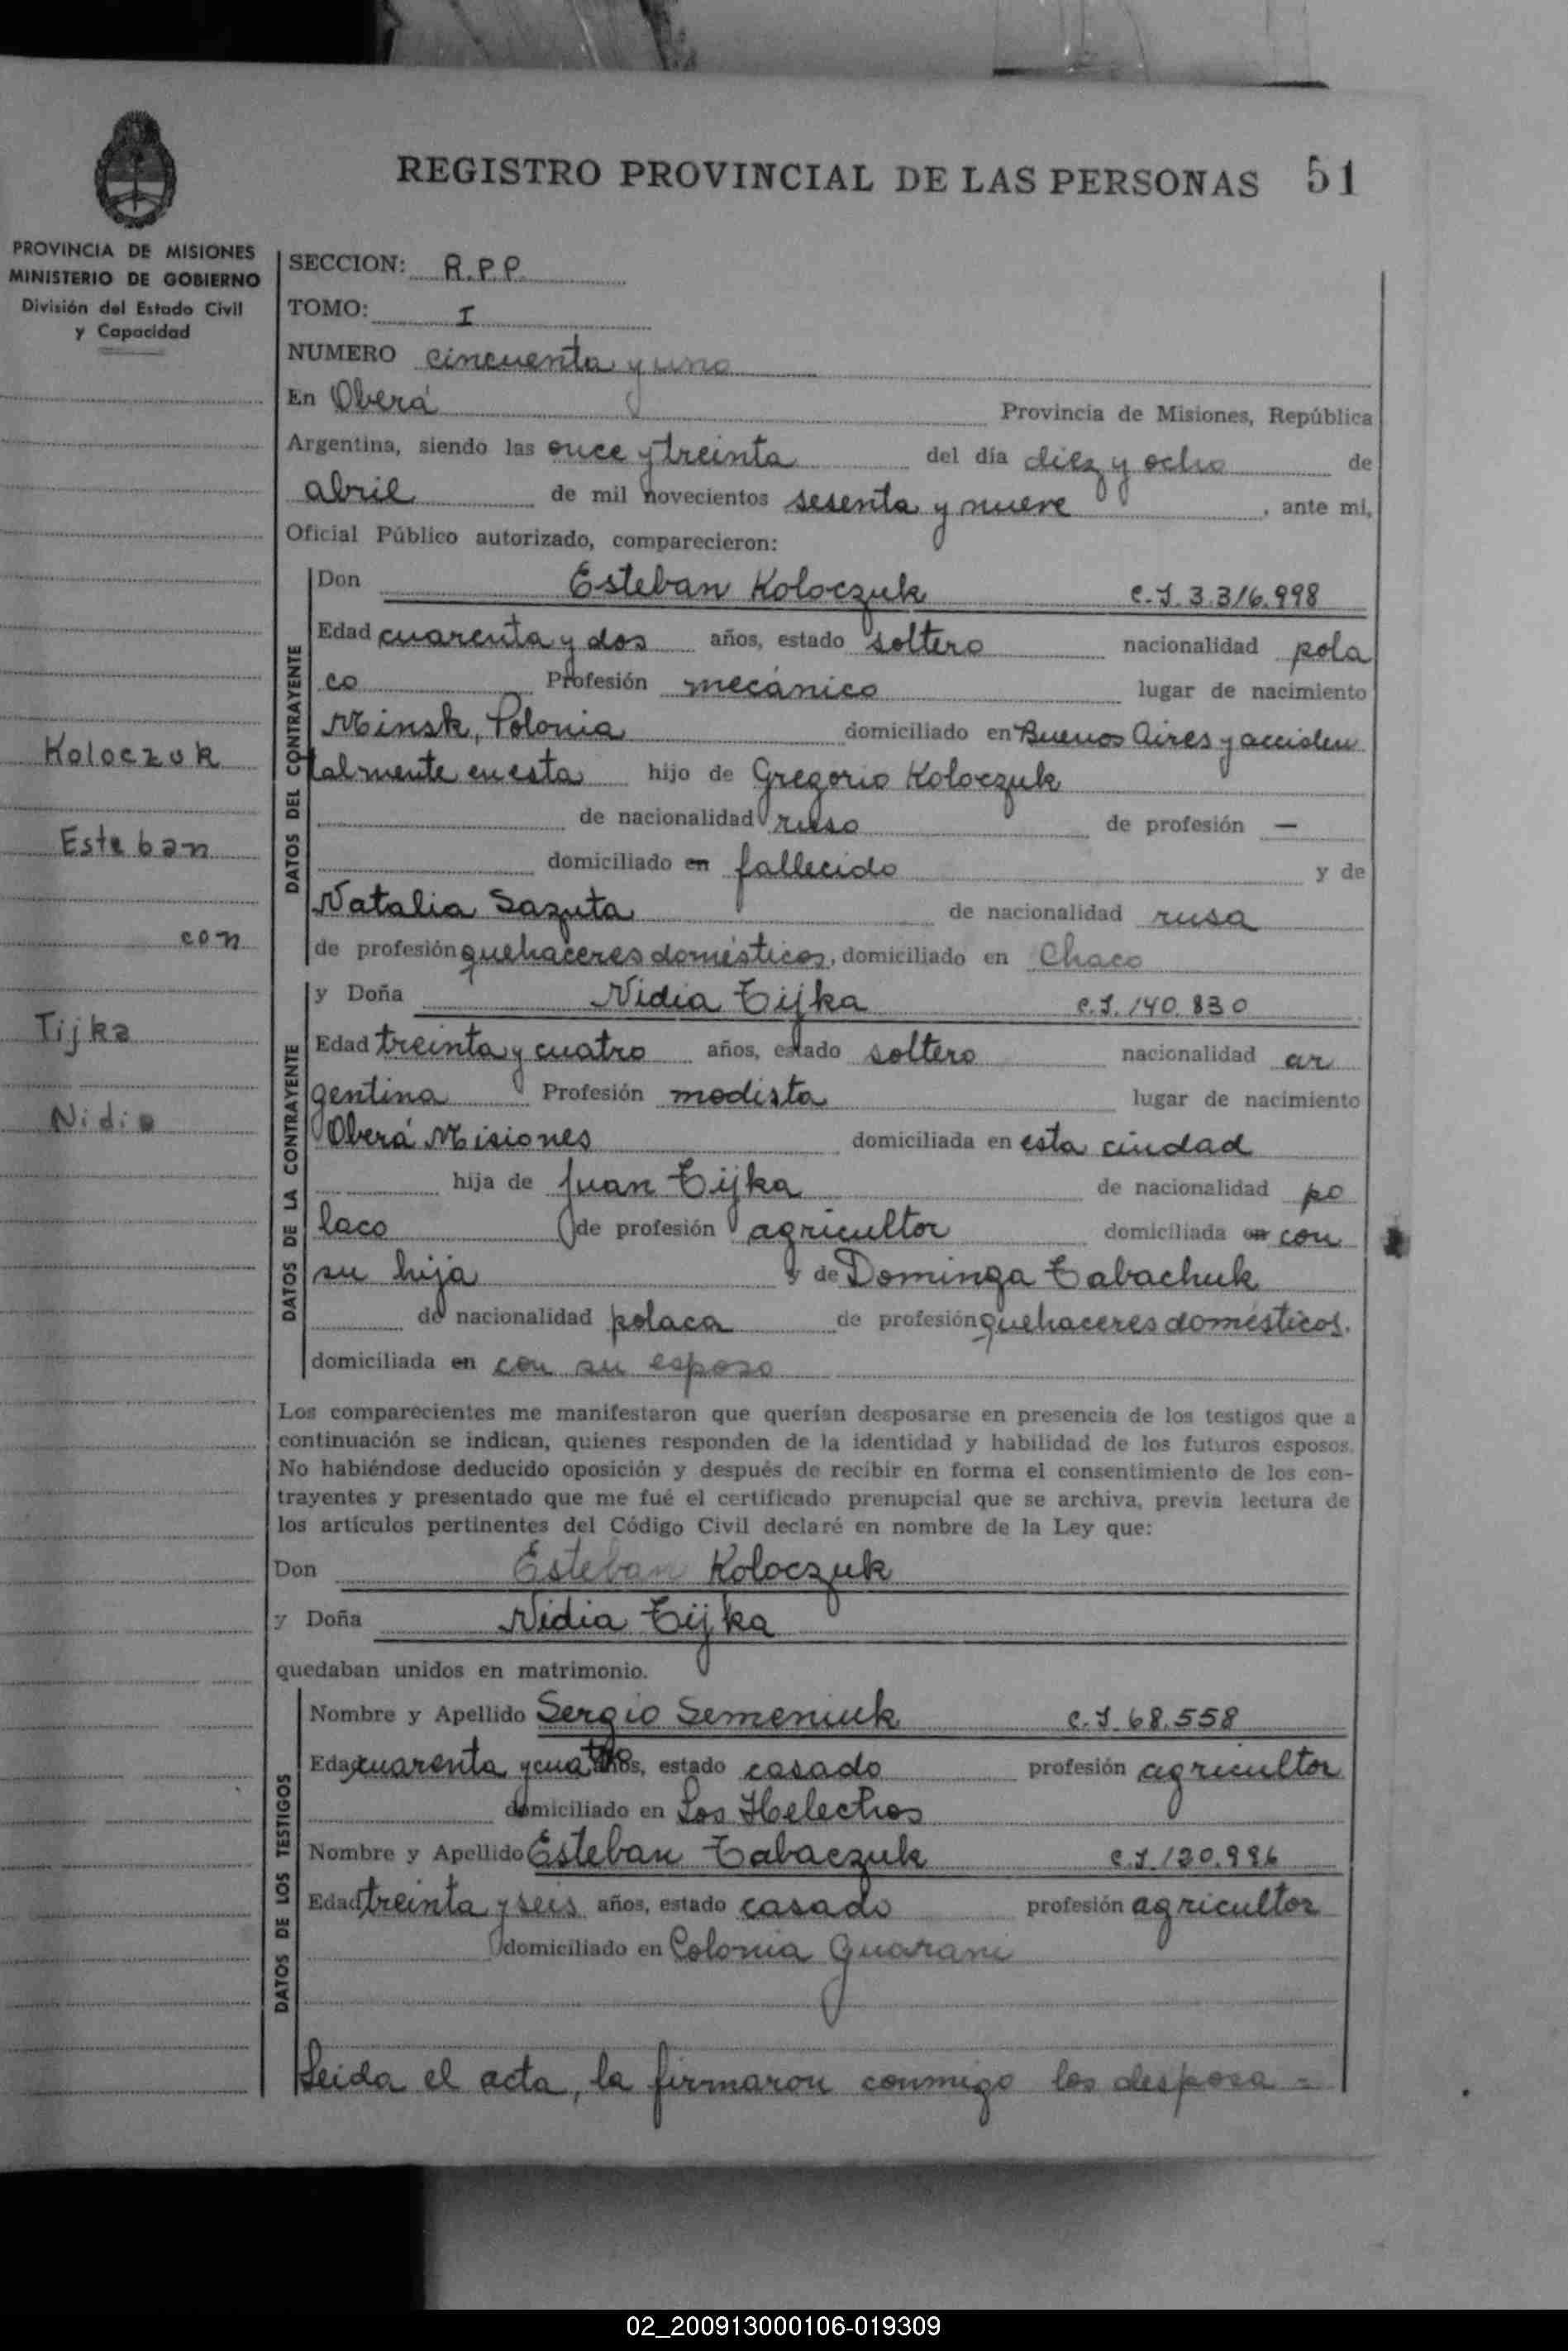 REGISTRO PROVINCIAL DE LAS PERSONAS 51
PROVINCIA DE MISIONES
MINISTERIO DE GOBIERNO
División del Estado Civil
y Capacidad
Koloczuk
Esteban
con
Tijka
Nidia
SECCION: R.P.P.
TOMO: I
NUMERO cincuenta y uno
En Oberá Provincia de Misiones, República
Argentina, siendo las once y treinta del día diez y ocho de
abril de mil novecientos sesenta y nueve, ante mi,
Oficial Público autorizado, comparecieron:
DATOS DEL CONTRAYENTE
Don Esteban Koloczuk C.I. 3.316.998
Edad cuarenta y dos años, estado soltero nacionalidad pola
co Profesión mecánico lugar de nacimiento
Minsk, Polonia domiciliado en Buenos Aires y acciden
talmente en esta hijo de Gregorio Koloczuk
de nacionalidad ruso de profesión —
domiciliado en fallecido y de
Natalia Sazuta de nacionalidad rusa
de profesión quehaceres domésticos, domiciliado en Chaco
DATOS DE LA CONTRAYENTE
y Doña Nidia Tijka C.I. 140.830
Edad treinta y cuatro años, estado soltero nacionalidad ar
gentina Profesión modista lugar de nacimiento
Oberá Misiones domiciliada en esta ciudad
hija de Juan Tijka de nacionalidad po
laco de profesión agricultor domiciliada en con
su hija y de Dominga Tabachuk
de nacionalidad polaca de profesión quehaceres domésticos.
domiciliada en con su esposo
Los comparecientes me manifestaron que querían desposarse en presencia de los testigos que a
continuación se indican, quienes responden de la identidad y habilidad de los futuros esposos.
No habiéndose deducido oposición y después de recibir en forma el consentimiento de los con-
trayentes y presentado que me fué el certificado prenupcial que se archiva, previa lectura de
los artículos pertinentes del Código Civil declaré en nombre de la Ley que:
Don Esteban Koloczuk
y Doña Nidia Tijka
quedaban unidos en matrimonio.
DATOS DE LOS TESTIGOS
Nombre y Apellido Sergio Semeniuk C.I. 68.558
Edad cuarenta y cuatro años, estado casado profesión agricultor
domiciliado en Los Helechos
Nombre y Apellido Esteban Tabaczuk C.I. 120.996
Edad treinta y seis años, estado casado profesión agricultor
domiciliado en Colonia Guarani
Leida el acta, la firmaron conmigo los desposa=
02_200913000106-019309